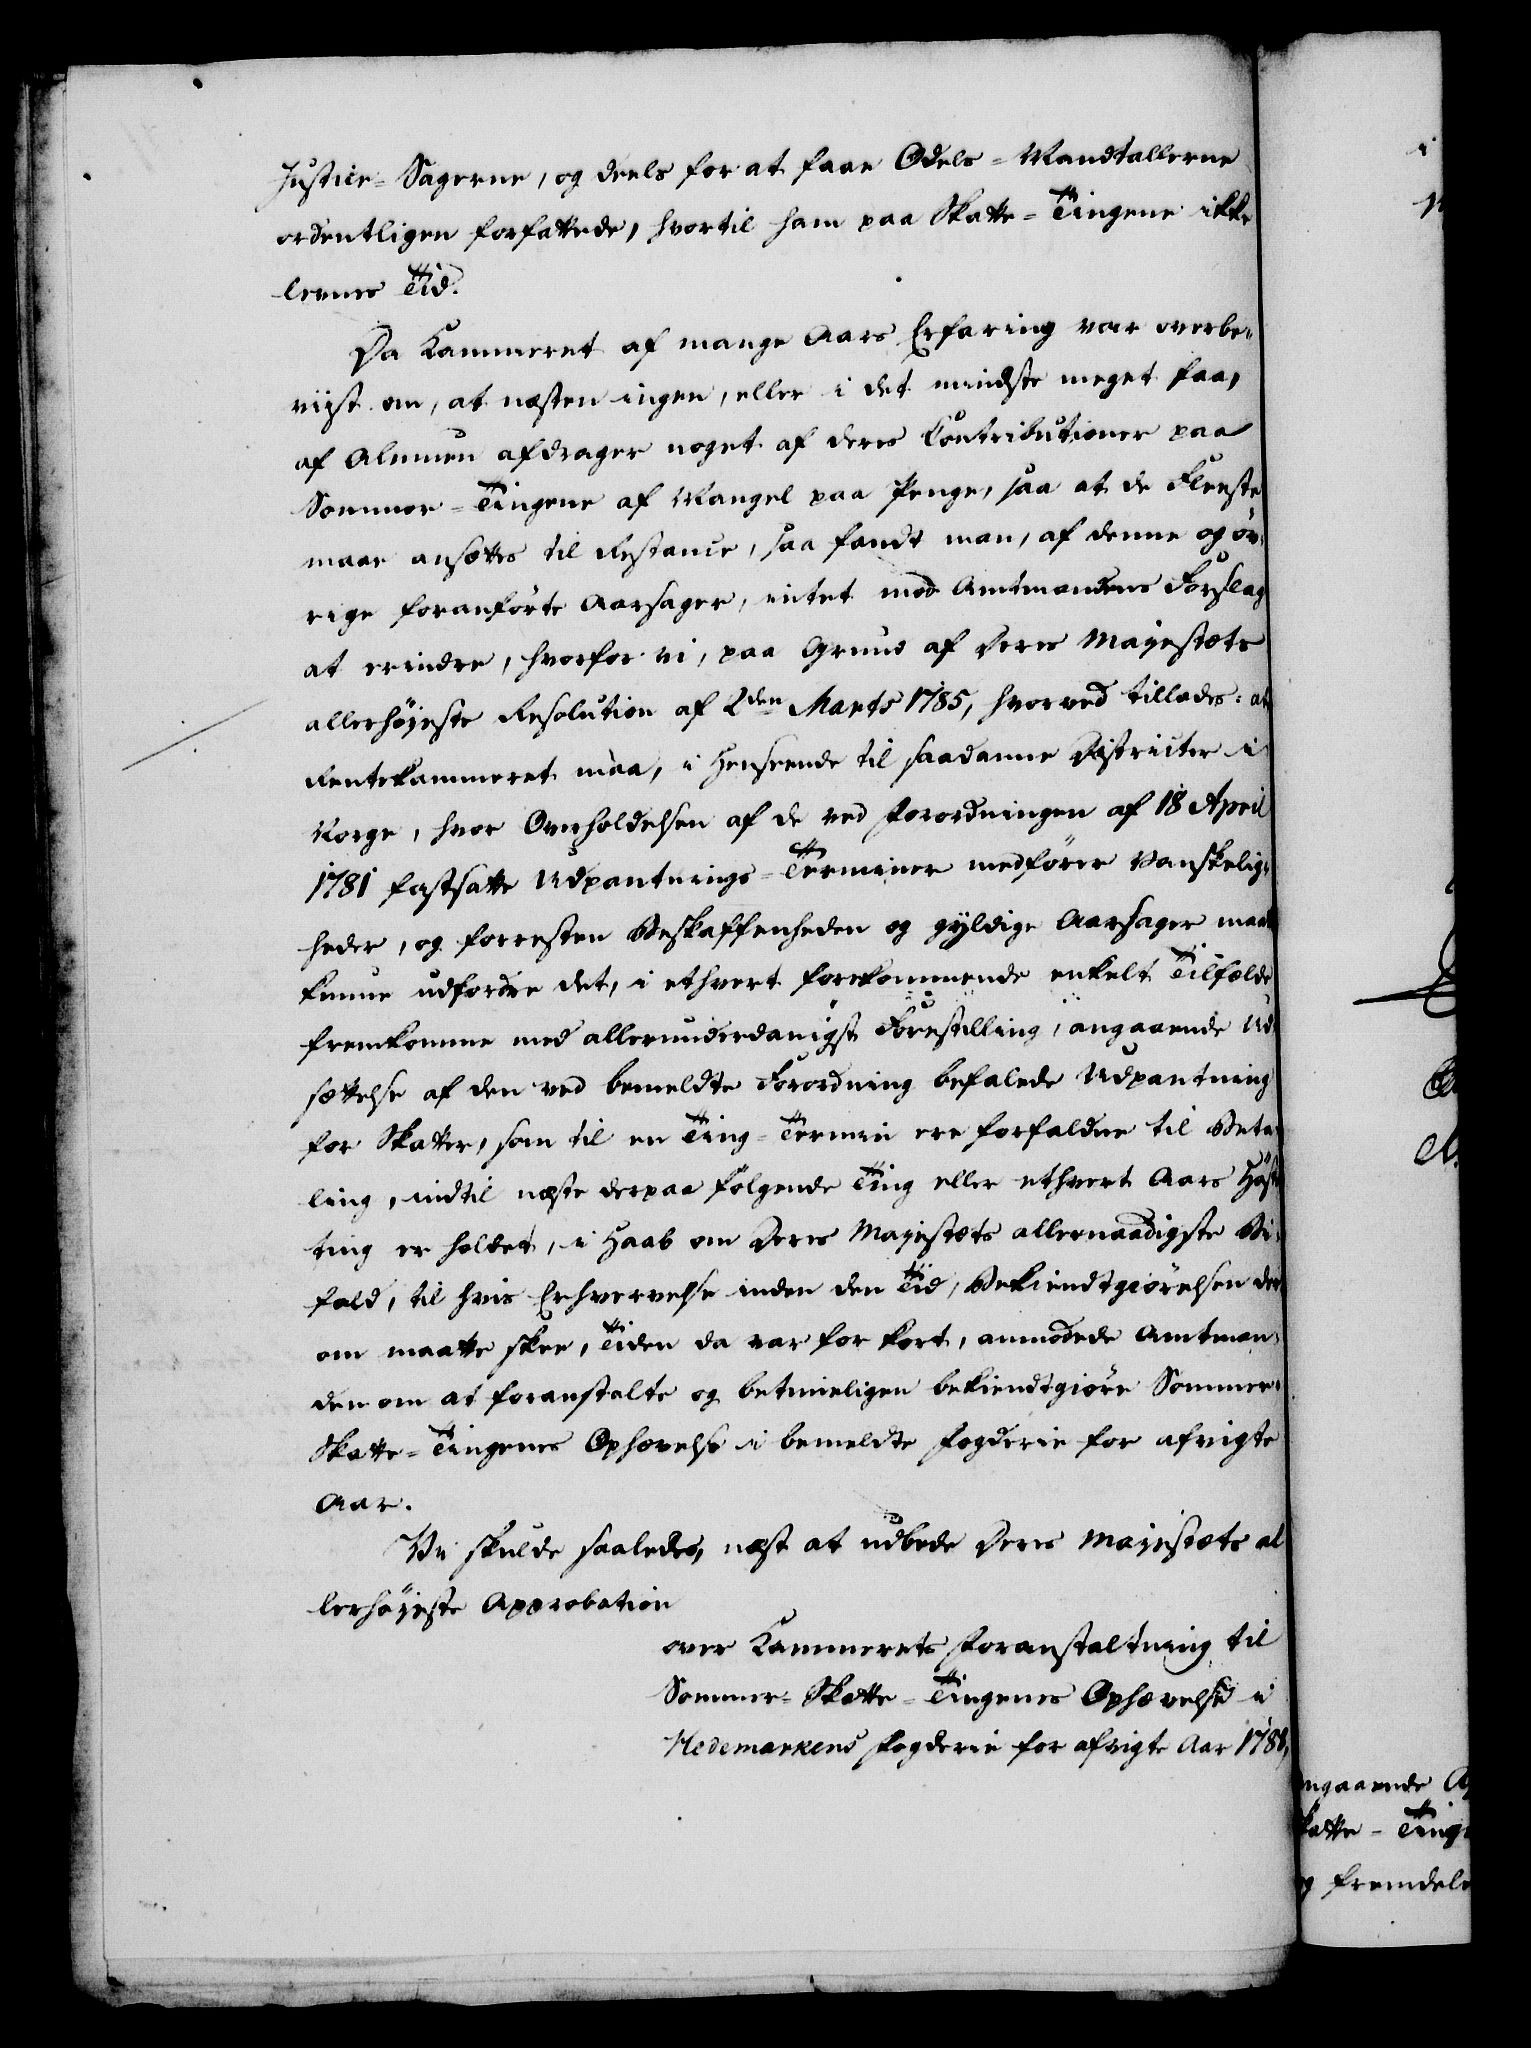 Justice-Sagerne, og deels for at faae Odels-Mandtallerne
ordentligen forfattede, hvortil ham paa Skatte-Tingene ikke
levnes Tid.
Da Kammeret af mange Aars Erfaring var overbe-
viist om, at næsten ingen, eller i det mindste meget faa,
af Almuen afdrager noget af deres Contributioner paa
Sommer-Tingene af Mangel paa Penge, saa at de Fleeste
maae ansættes til Restance, saa fandt man, af denne og öv-
rige foranförte Aarsager, intet mod Amtmandens Forslag
at erindre, hvorfor vi, paa Grund af Deres Majestæts
allerhöjeste Resolution af 2den Marts 1785, hvorved tillades: at
Rentekammeret maa, i Henseende til saadanne Districter i
Norge, hvor Overholdelsen af de ved Forordningen af 18 April
1781 fastsatte Udpantnings-Terminer medförer Vanskelig-
heder, og forresten Beskaffenheden og gyldige Aarsager maatte
kunne udfordre det, i ethvert forekommende enkelt Tilfælde
fremkomme med allerunderdanigst Forestilling, angaaende Ud-
sættelse af den ved bemeldte Forordning befalede Udpantning
for Skatter, som til en Ting-Termin ere forfaldne til Beta-
ling, indtil næste derpaa fölgende Ting eller ethvert Aars Höst-
ting er holdet, i Haab om Deres Majestæts allernaadigste Bi-
fald, til hvis Erhvervelse inden den Tid, Bekiendtgiörelsen der-
om maatte skee, Tiden da var for kort, anmodede Amtman-
den om at foranstalte og betimeligen bekiendtgiöre Sommer-
Skatte-Tingenes Ophævelse i bemeldte Fogderie for afvigte
Aar.
Vi skulde saaledes, næst at udbede Deres Majestæts al-
lerhöjeste Approbation
over Kammerets Foranstaltning til
Sommer-Skatte-Tingenes Ophævelse i
Hedemarkens Fogderie for afvigte Aar 1788,
ngaaende
katte-Ting
fremdele